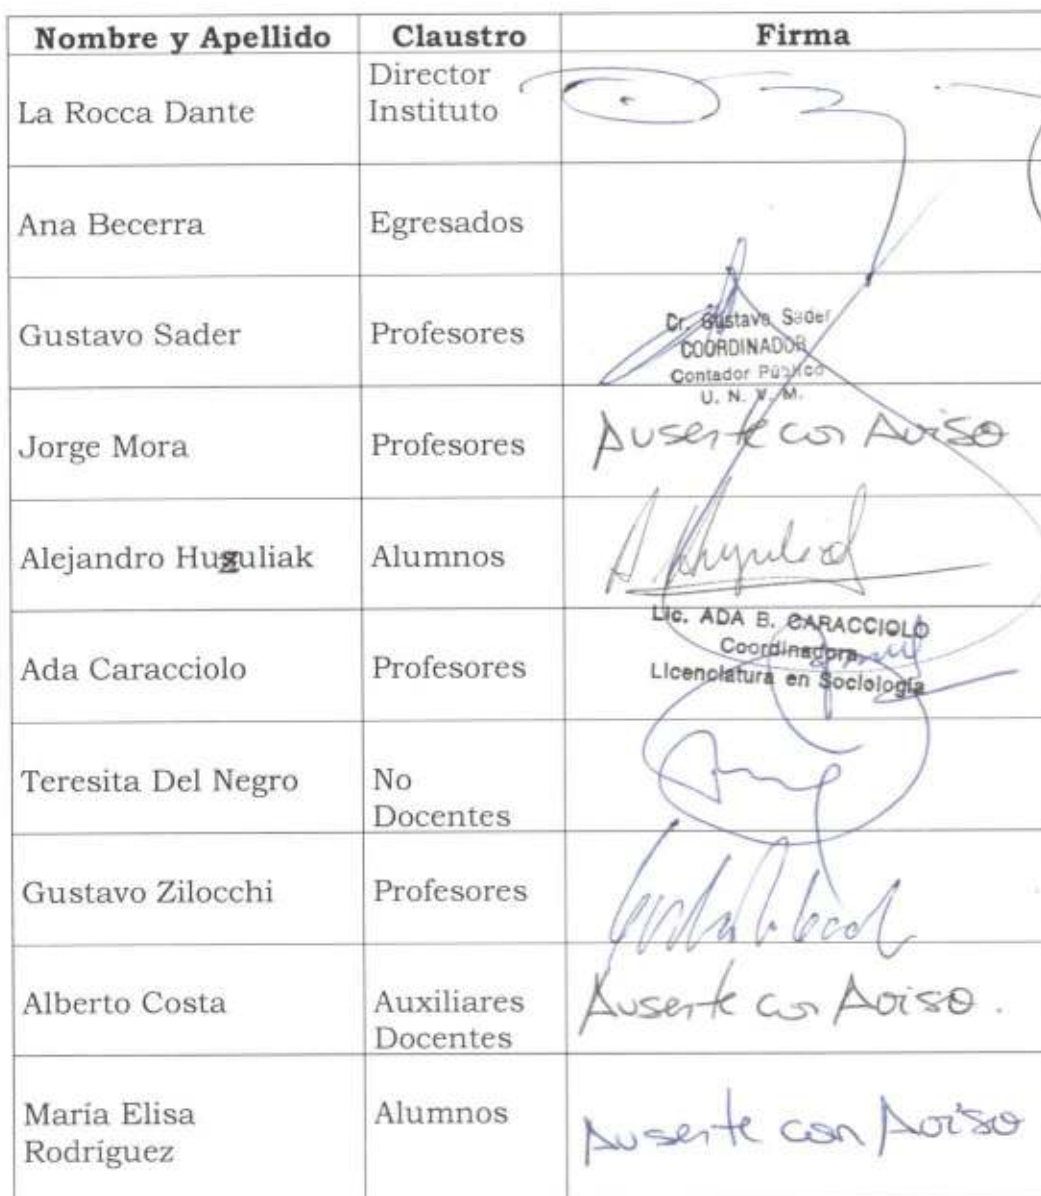 Nombre y Apellido Claustro Firma
La Rocca Dante Director
Instituto
Ana Becerra Egresados
Gustavo Sader Profesores Cr. Gustavo Sader
COORDINADOR
Contador Público
U. N. V. M.
Jorge Mora Profesores Ausente con Aviso
Alejandro Huguliak Alumnos
Ada Caracciolo Profesores Lic. ADA B. CARACCIOLO
Coordinadora
Licenciatura en Sociología
Teresita Del Negro No
Docentes
Gustavo Zilocchi Profesores
Alberto Costa Auxiliares Ausente con Aviso.
Docentes
María Elisa Alumnos Ausente con Aviso
Rodríguez